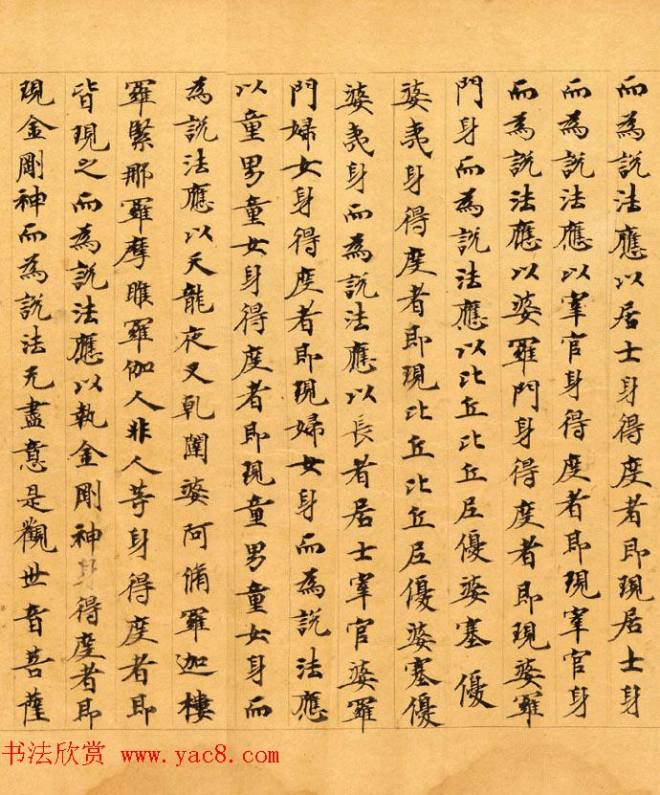 而為説法應以居士身得度者即現居士身
而為説法應以宰官身得度者即現宰官身
而為説法應以婆羅門身得度者即現婆羅
門身而為説法應以比丘比丘尼優婆塞優
婆夷身得度者即現比丘比丘尼優婆塞優
婆夷身而為説法應以長者居士宰官婆羅
門婦女身得度者即現婦女身而為説法應
以童男童女身得度者即現童男童女身而
為説法應以天龍夜叉乹闥婆阿脩羅迦樓
羅緊那羅摩睺羅伽人非人等身得度者即
皆現之而為説法應以執金剛神身得度者即
現金剛神而為説法无盡意是觀世音菩薩
书法欣赏 www.yac8.com